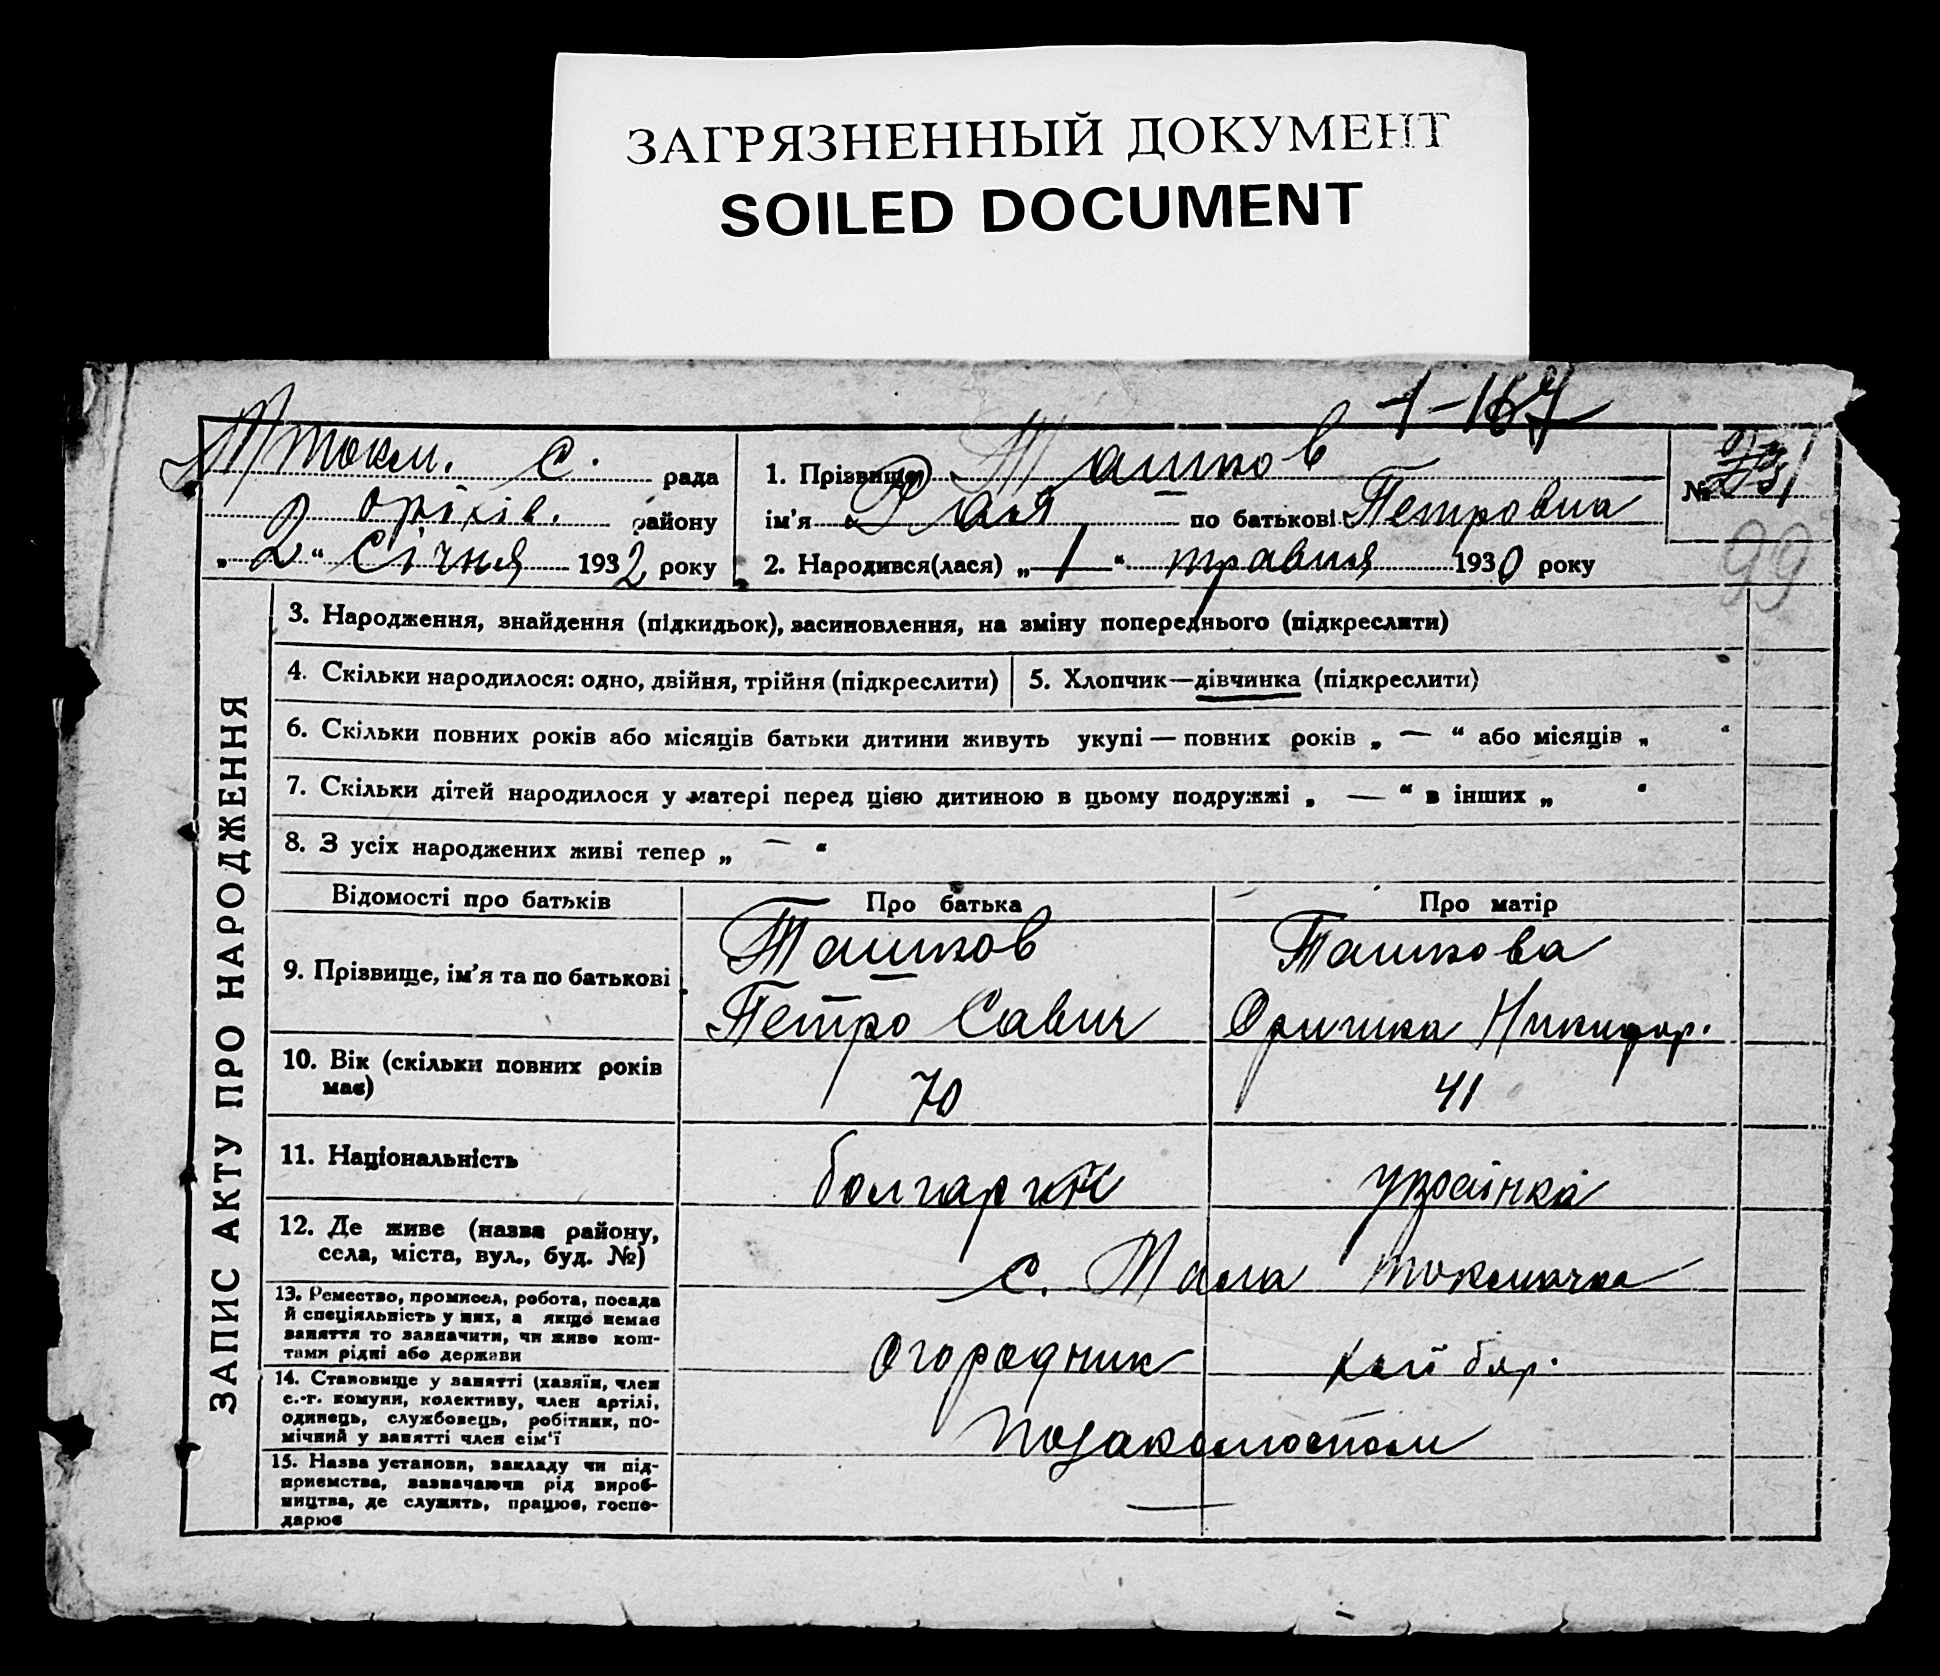 ЗАГРЯЗНЕННЫЙ ДОКУМЕНТ
SOILED DOCUMENT
1-167
М токм. с. рада
Оріхів. району
„ 2 “ Січня 1932 року
1. Прізвище Ташков
ім'я по батькові Петровна
2. Народився(лася) „ 1 “ травня 1930 року
№
99
ЗАПИС АКТУ ПРО НАРОДЖЕННЯ
3. Народження, знайдення (підкидьок), засиновлення, на зміну попереднього (підкреслити)
4. Скільки народилося: одно, двійня, трійня (підкреслити)
5. Хлопчик—дівчинка (підкреслити)
6. Скільки повних років або місяців батьки дитини живуть укупі — повних років „ — “ або місяців „ “
7. Скільки дітей народилося у матері перед цією дитиною в цьому подружжі „ — “ в інших „ “
8. З усіх народжених живі тепер „ — “
Відомості про батьків Про батька Про матір
9. Прізвище, ім'я та по батькові
Ташков
Петро Савич
Ташкова
Оришка Никифор.
10. Вік (скільки повних років
має)
70 41
11. Національність
болгарин українка
12. Де живе (назва району,
села, міста, вул., буд. №)
с. Мала Токмачка
13. Ремество, промисел, робота, посада
й спеціяльність у них, а якщо немає
заняття то зазначити, чи живе кош-
тами рідні або держави
огородник
14. Становище у занятті (хазяїн, член
с.-г. комуни, колективу, член артілі,
одинець, службовець, робітник, по-
мічний у занятті член сім'ї
15. Назва установи, закладу чи під-
приємства, зазначаючи рід вироб-
ництва, де служить, працює, госпо-
дарює
—